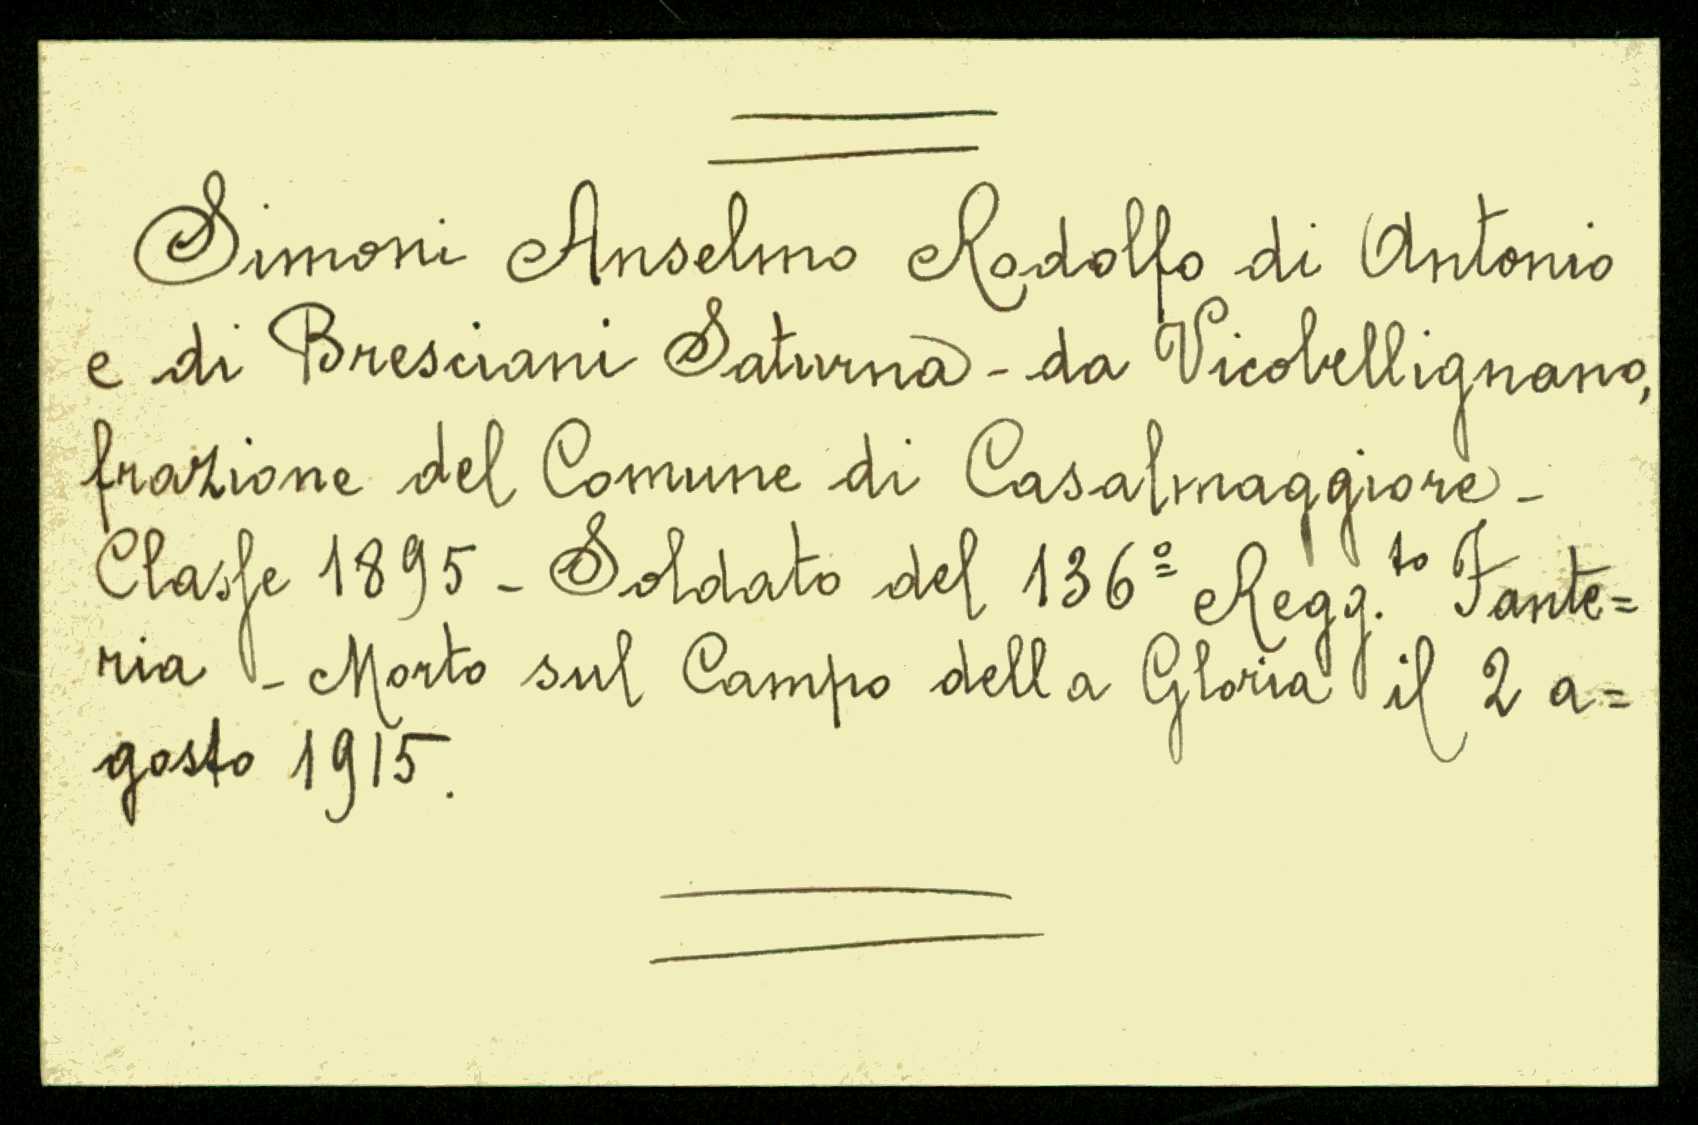 Simoni Anselmo Rodolfo di Antonio
e di Bresciani Saturna - da Vicobellignano,
frazione del Comune di Casalmaggiore -
Classe 1895 - Soldato del 136º Regg.to Fante=
ria - Morto sul Campo della Gloria il 2 a=
gosto 1915.